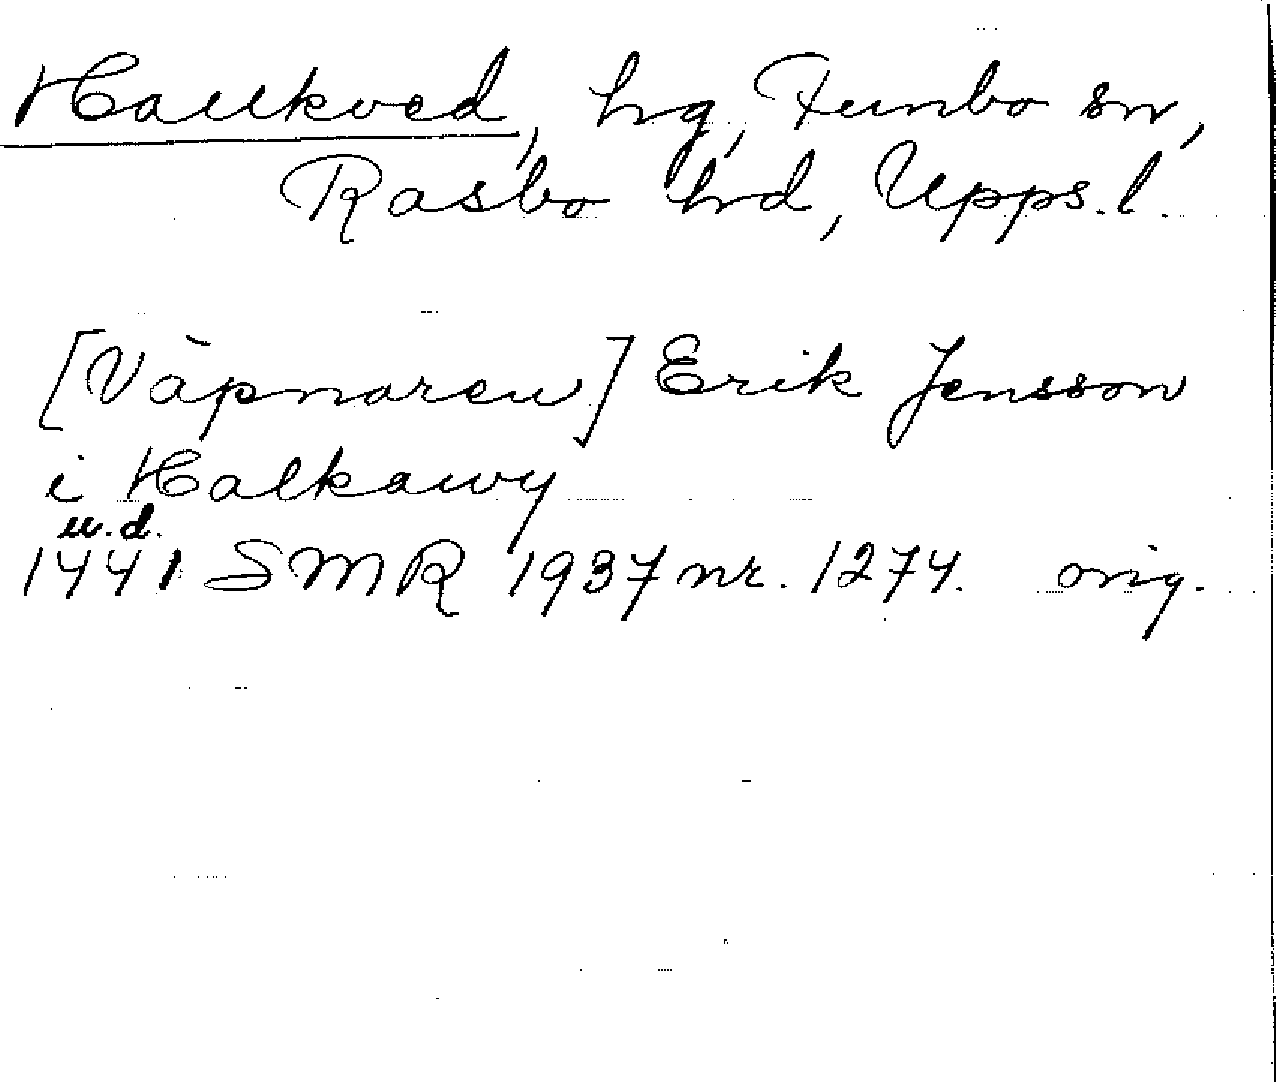 Hallkved, hg, Funbo sn,
Rasbo hd, Upps. l.
[Väpnaren] Erik Jensson
i Halkawy
u.d.
1441 SMR 1937 nr. 1274. orig.